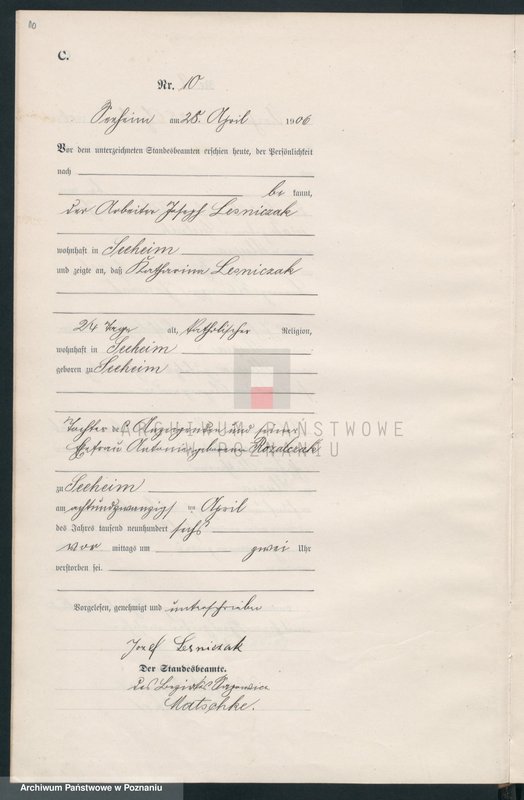 10
C.
Nr. 10
Seeheim am 28. April 1906
Vor dem unterzeichneten Standesbeamten erschien heute, der Persönlichkeit
nach
be kannt,
der Arbeiter Joseph Lesniczak
wohnhaft in Seeheim
und zeigte an, daß Katharina Lesniczak
24 Tage alt, katholischer Religion,
wohnhaft in Seeheim
geboren zu Seeheim
Tochter des Anzeigenden und seiner
Ehefrau Antonia geborenen
ARCHIWUM PAŃSTWOWE
W POZNANIU
zu Seeheim
am achtundzwanzigsten April
des Jahres tausend neunhundert sechs
vor mittags um zwei Uhr
verstorben sei.
Vorgelesen, genehmigt und unterschrieben
Jozef Lesniczak
Der Standesbeamte.
des Bezirks
Matschke.
Archiwum Państwowe w Poznaniu